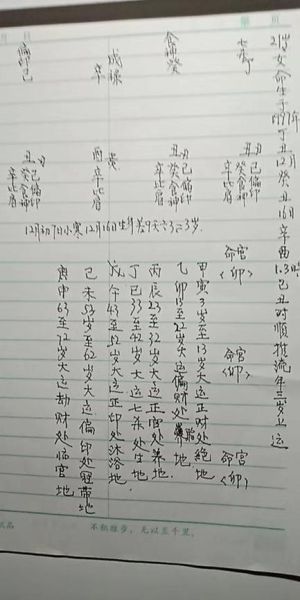 21岁女命生于1997年丁丑12月癸丑16日辛酉1.3时己丑时顺推流年三岁上运
七杀丁
丑
己偏印
癸食神
辛比肩
食神癸
丑
己偏印
癸食神
辛比肩
辛
酉
辛比肩
偏印己
丑
己偏印
癸食神
辛比肩
12月初7日小寒12月16日生差9天三岁.
命宫
〈卯〉
命宫
〈卯〉
命宫
〈卯〉
甲寅3岁至13岁大运正财处绝地
乙卯13至22岁大运偏财处胎地
丙辰23至32岁大运正官处养地
丁巳33至42岁大运七杀处生地
戊午43至52岁大运正印处沐浴地
己未53岁至62岁大运偏印处冠带地
庚申63至72岁大运劫财处临官地
不积跬步，无以至千里。